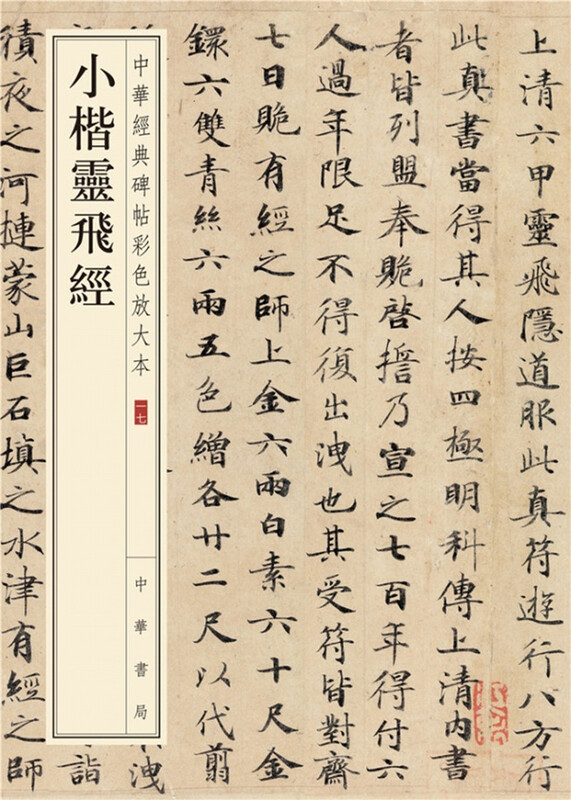 上清六甲靈飛隱道服此真符遊行八方行
此真書當得其人按四極明科傳上清內書
者皆列盟奉貺啓誓乃宣之七百年得付六
人過年限足不得復出洩也其受符皆對齋
七日貺有經之師上金六兩白素六十尺金
鐶六雙青絲六兩五色繒各廿二尺以代翦
洩
中華經典碑帖彩色放大本
一七
中華書局
小楷靈飛經
詣
積夜之河摙蒙山巨石填之水津有經之師